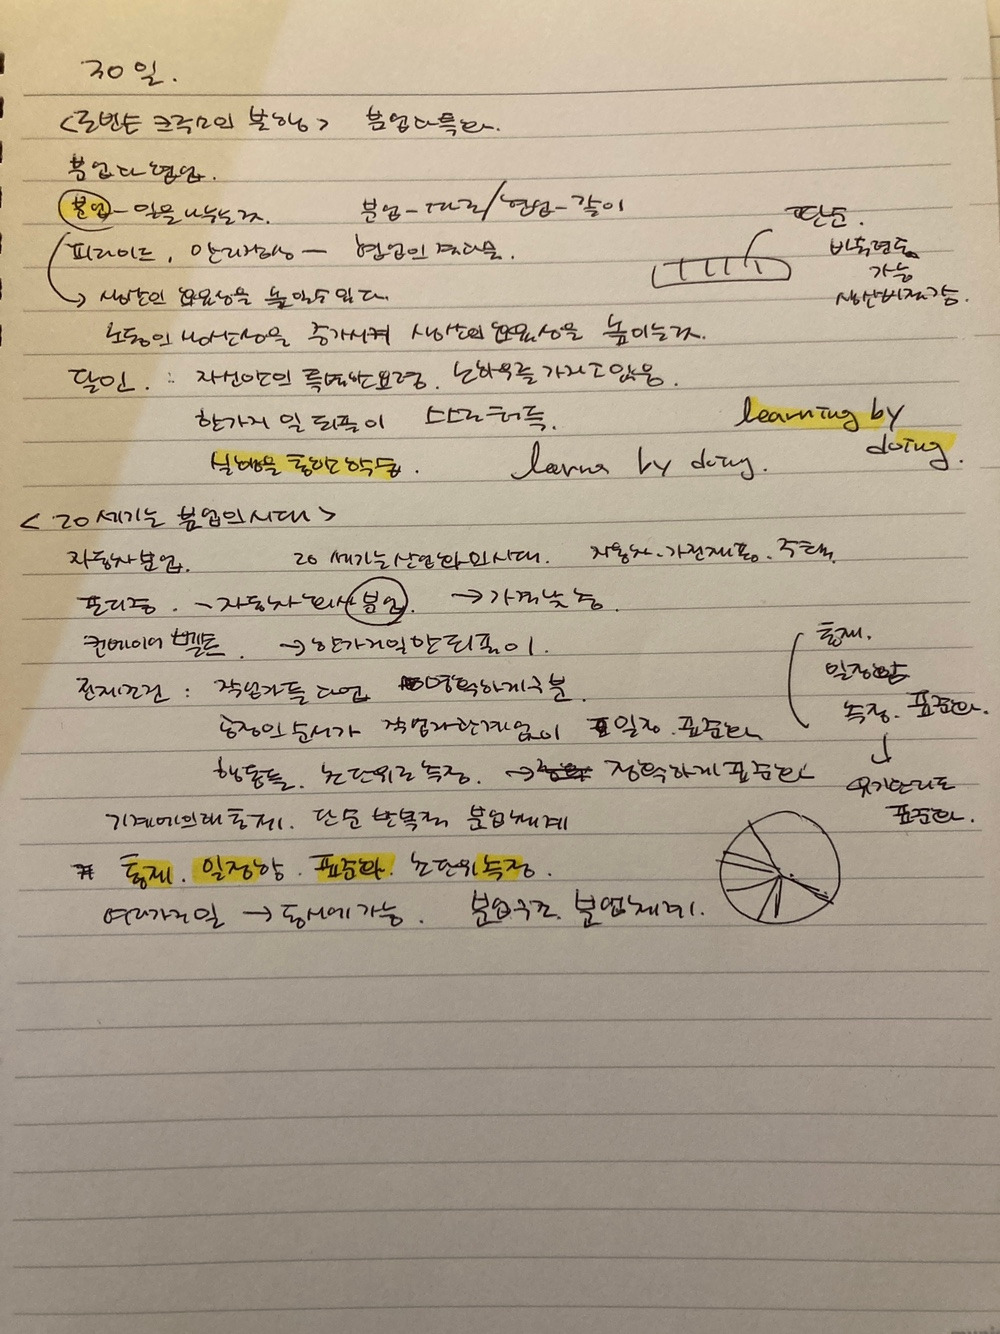 30일.
<로빈슨 크루소의 불행> 분업과 특화.
분업과 협업.
분업 - 일을 나누는것. 분업 - 따로 / 협업 - 같이
피라미드, 만리장성 - 협업의 결과물.
단순.
비숙련도
가능
생산비절감.
→ 생산의 효율성을 높일수있다.
노동의 생산성을 증가시켜 생산의 효율성을 높이는것.
달인 : 자신만의 특별한 요령, 노하우를 가지고 있음.
한가지 일 되풀이 스스로 터득.
learning by
doing.
실행을 통한 학습. learna by doing.
<20세기는 분업의 시대>
자동차분업. 20세기는 산업화의 시대. 자동차·가전제품·주택.
포디즘. - 자동차회사 분업. → 가격낮춤.
컨베이어 벨트. → 한가지일만 되풀이.
전제조건 : 작업자들 과업 명확하게 구분.
공정의 순서가 작업자한계없이 일정. 표준화
행동들, 초단위로 측정. → 정확하게 표준화
통제.
일정함
측정. 표준화.
↓
표준화.
기계에의해 통제. 단순 반복적 분업체계
* 통제. 일정함. 표준화. 초단위측정.
여러가지일 → 동시에 가능. 분업구조. 분업체계.